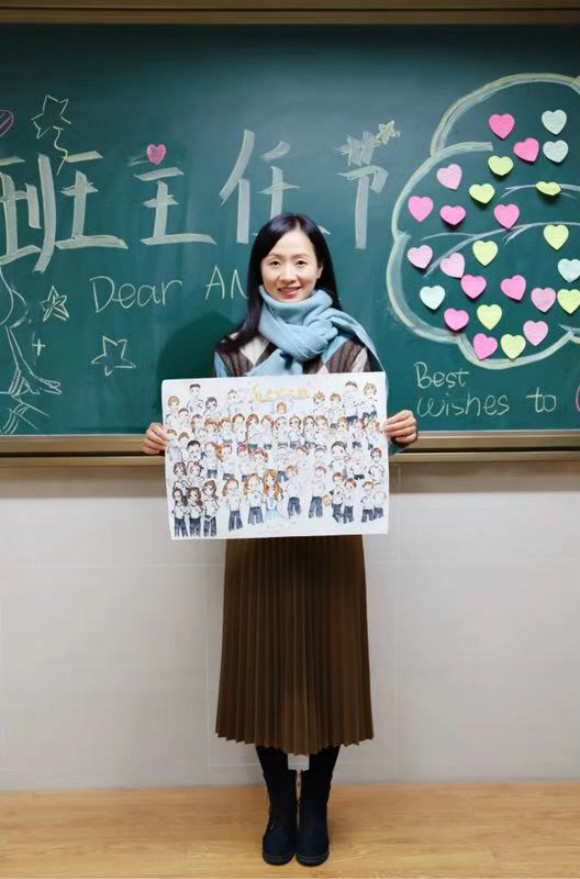 班主任节
Dear AN
Best
wishes to